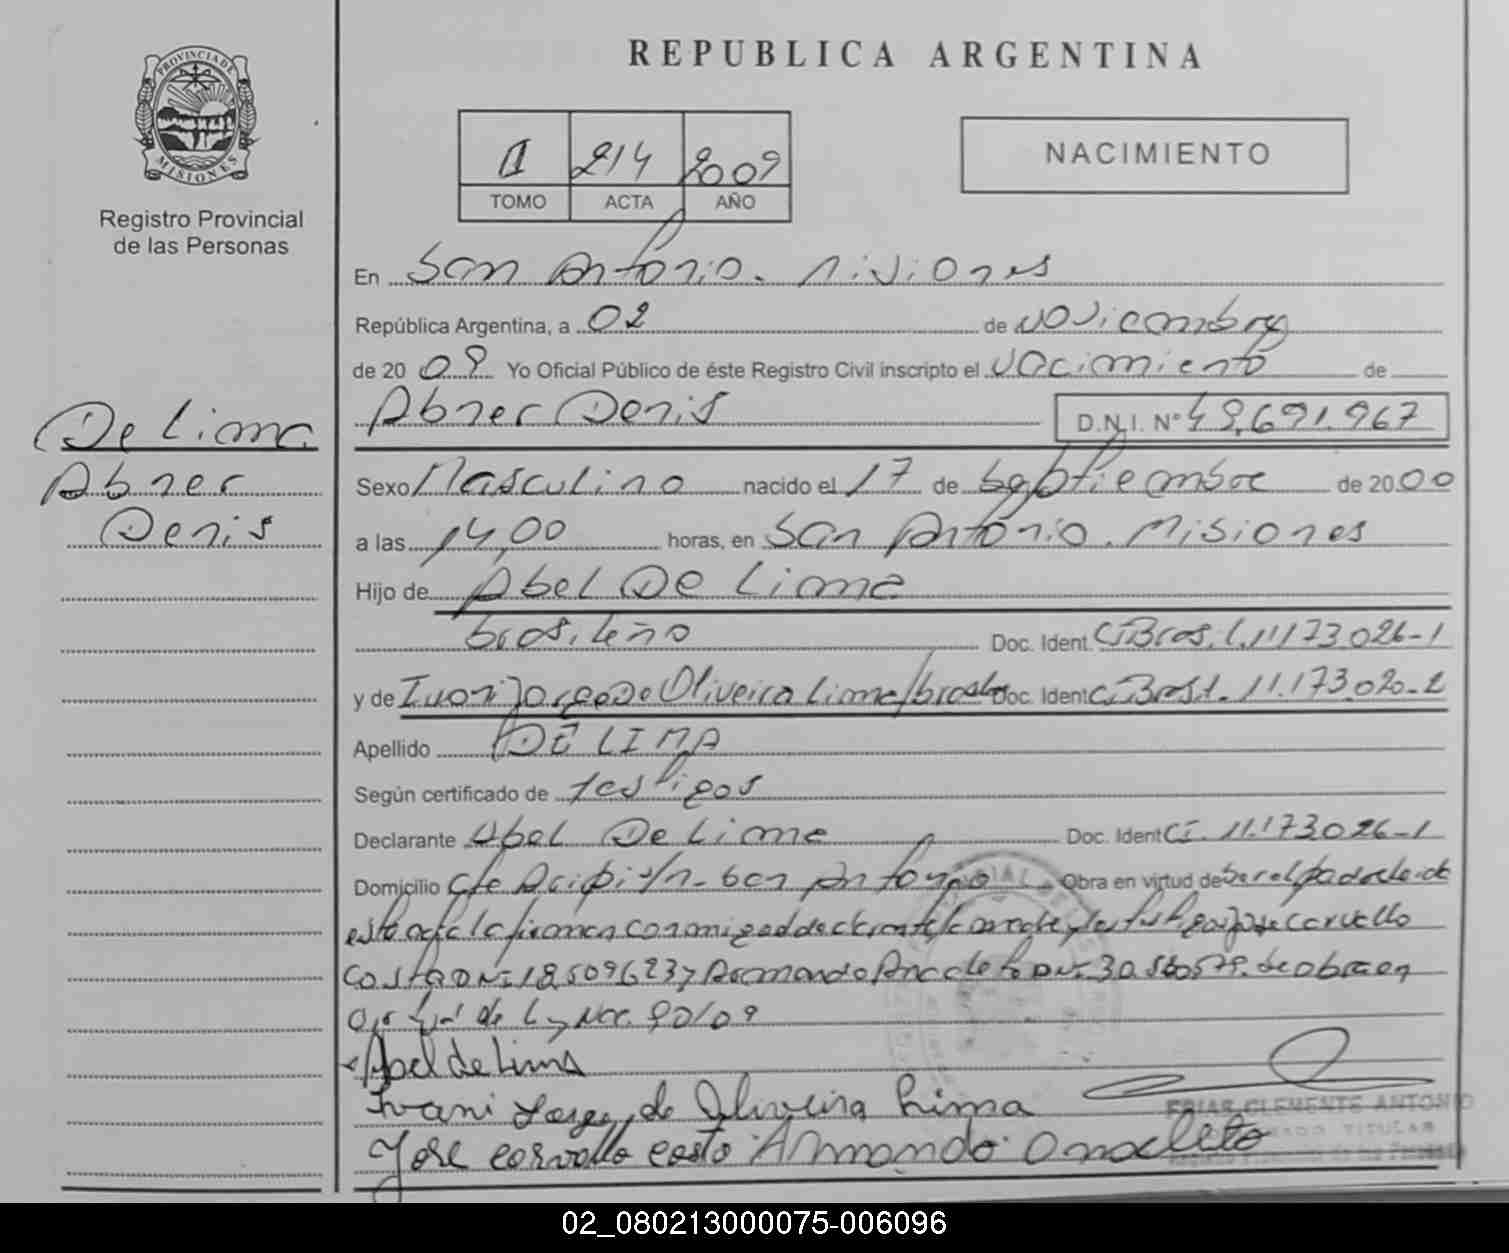 REPUBLICA ARGENTINA
PROVINCIA DE MISIONES
Registro Provincial
de las Personas
214 2009
TOMO ACTA AÑO
NACIMIENTO
En San Antonio. Misiones
República Argentina, a 02 de Noviembre
de 20 09 Yo Oficial Público de éste Registro Civil inscripto el Nacimiento de
Abner Denis D.N.I. Nº 49.691.967
De Lima
Abner
Denis
Sexo Masculino nacido el 17 de Septiembre de 20 00
a las 14,00 horas, en San Antonio. Misiones
Hijo de Abel De Lima
brasileño Doc. Ident. CI Bras. 11.173.026-1
y de Ivani Jorge De Oliveira Lima/brasileña Doc. Ident CI Bras. 11.173.020-2
Apellido DE LIMA
Según certificado de testigos
Declarante Abel De Lima Doc. Ident CI. 11.173026-1
Domicilio San Antonio Obra en virtud de ser el padre de
esta acta la firman conmigo el declarante la madre y los testigos Jose Carvallo
Costa DNI 18509623 y Armando Anacleto DNI 30.580579. se obra en
de Ley Nac. 90/09
Abel de Lima
Ivani Jorge de Oliveira Lima
Jose corvallo costa Armando Anacleto
FRIAS CLEMENTE ANTONIO
TITULAR
02_080213000075-006096